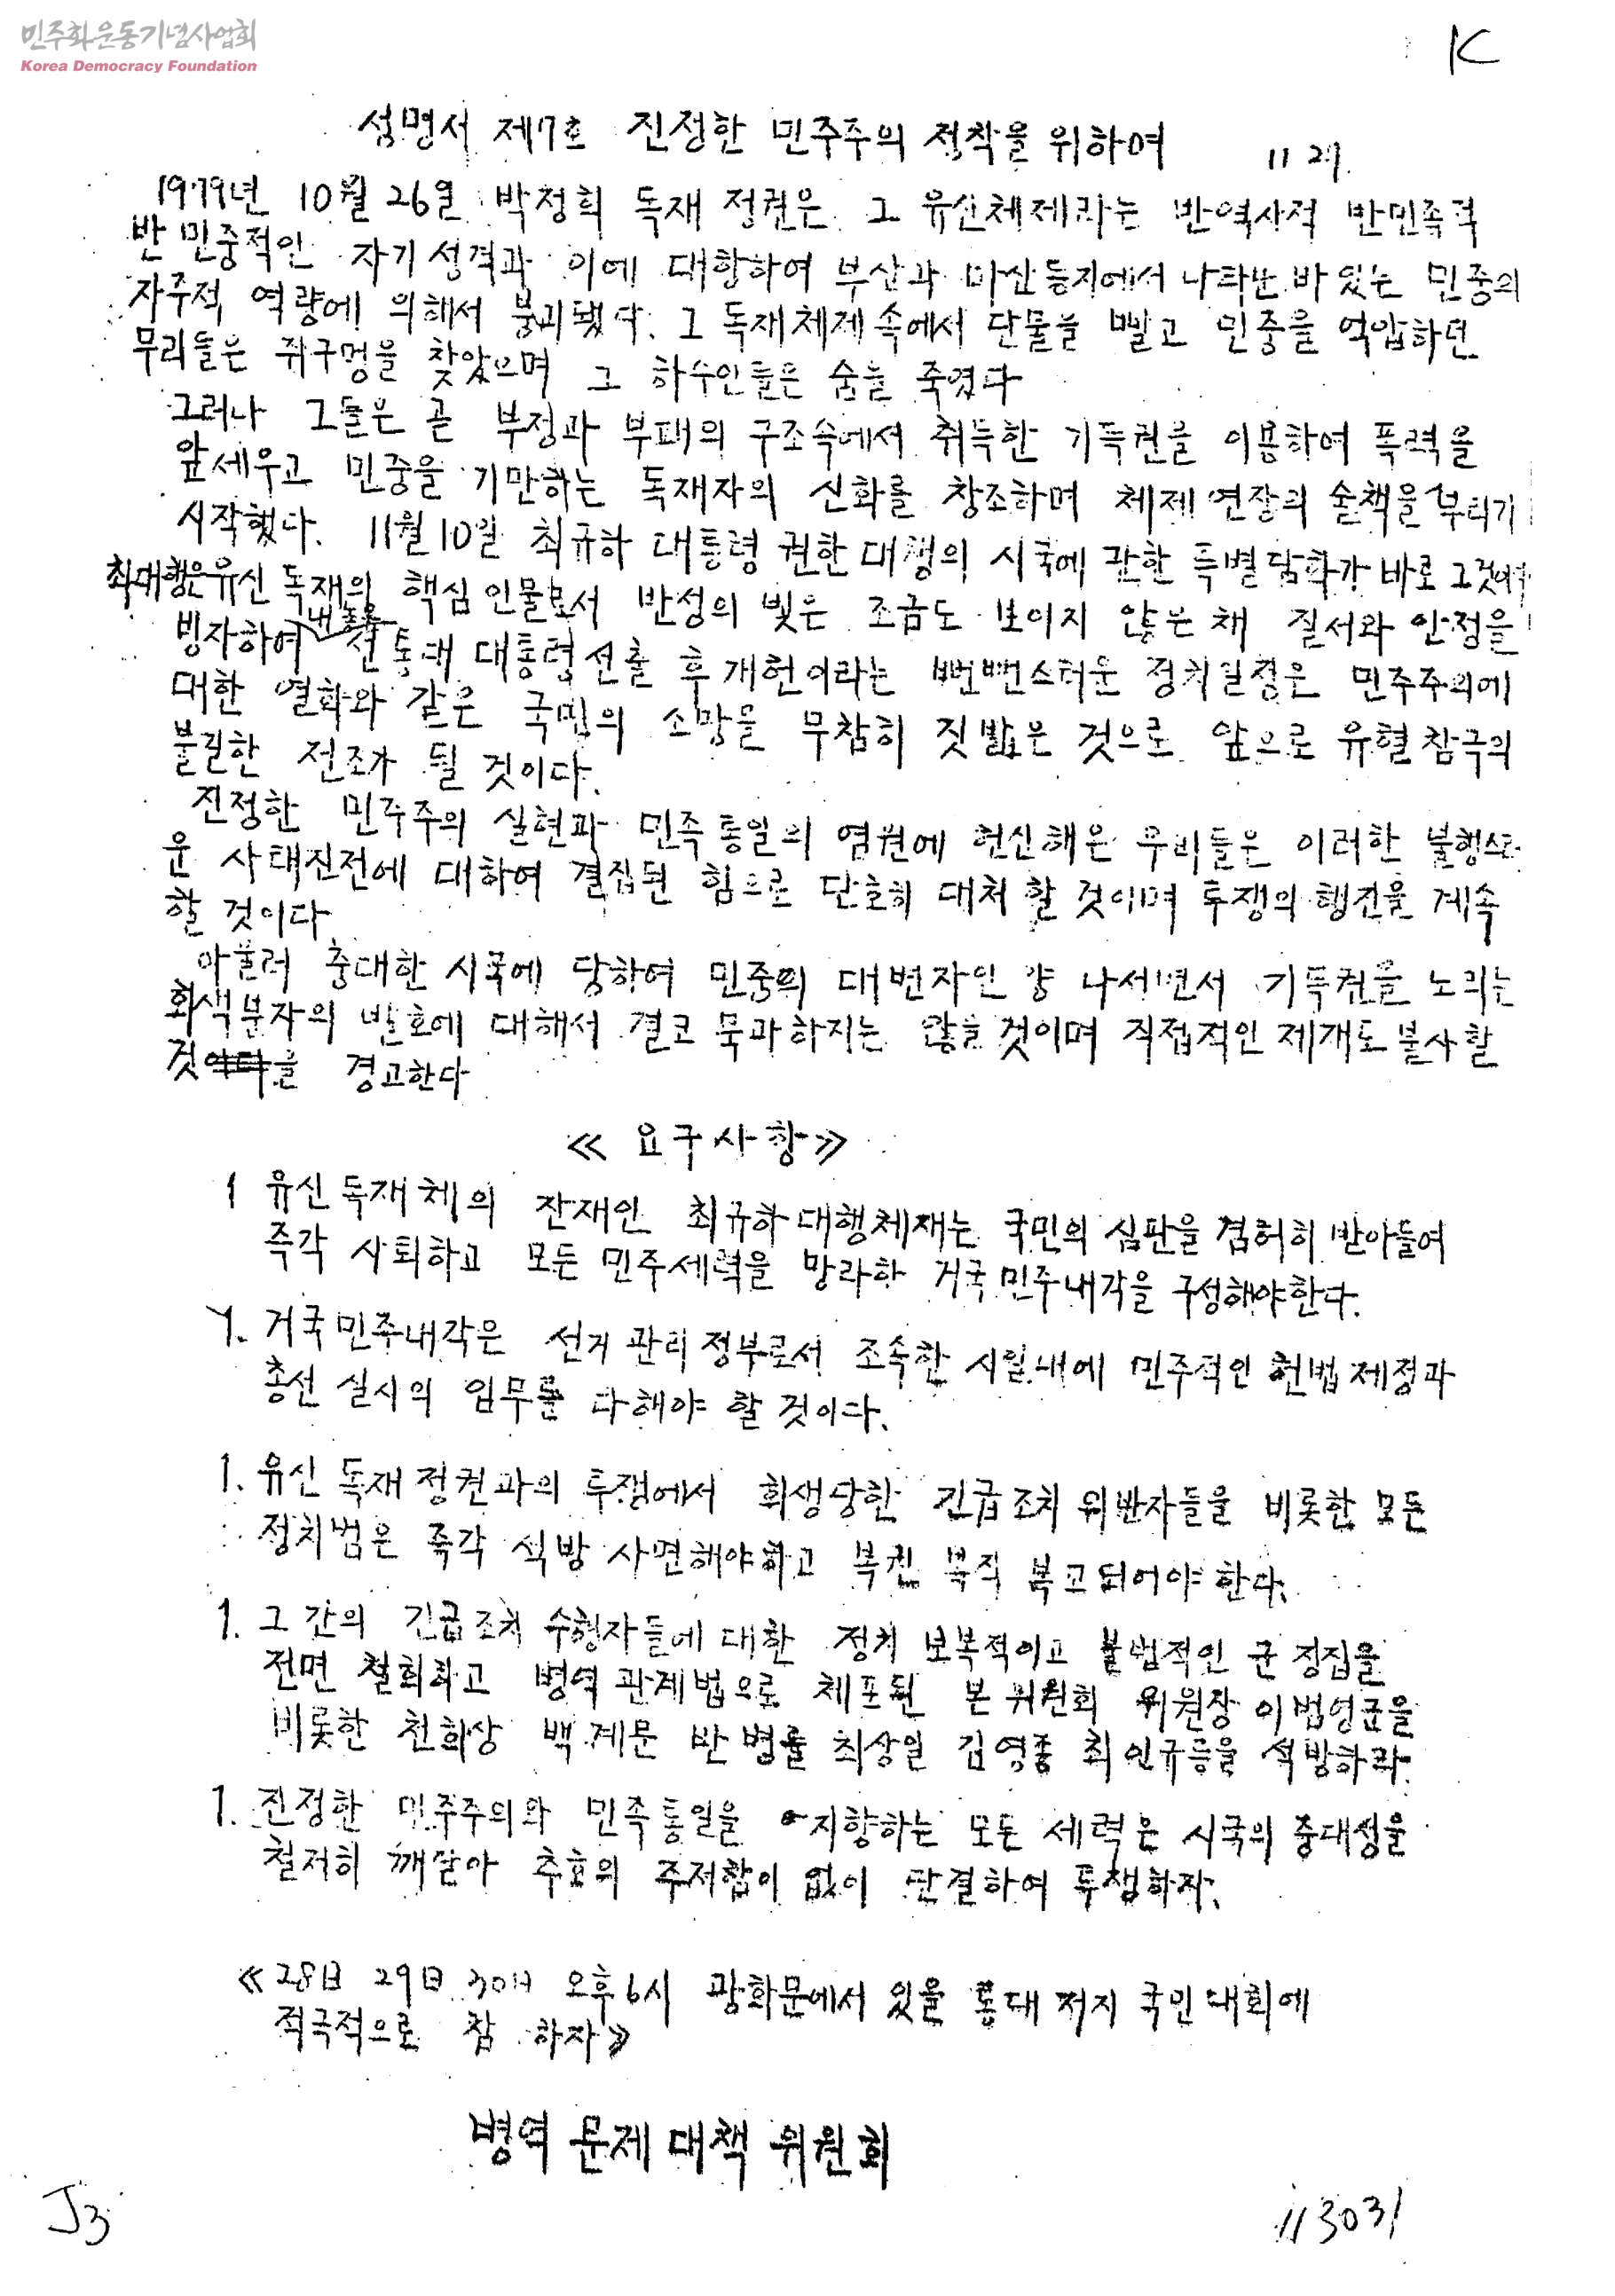 민주화운동기념사업회
Korea Democracy Foundation
K
성명서 제7호 진정한 민주주의 정착을 위하여 11 27.
1979년 10월 26일 박정희 독재 정권은 그 유신체제라는 반역사적 반민족적
반민중적인 자기성격과 이에 대항하여 부산과 마산등지에서 나타난 바 있는 민중의
자주적 역량에 의해서 붕괴됐다. 그 독재체제속에서 단물을 빨고 민중을 억압하던
무리들은 쥐구멍을 찾았으며 그 하수인들은 숨을 죽였다
그러나 그들은 곧 부정과 부패의 구조속에서 취득한 기득권을 이용하여 폭력을
앞세우고 민중을 기만하는 독재자의 신화를 창조하며 체제연장의 술책을 부리기
시작했다. 11월 10일 최규하 대통령 권한대행의 시국에 관한 특별담화가 바로 그것이다
최대행은 유신 독재의 핵심 인물로서 반성의 빛은 조금도 보이지 않은 채 질서와 안정을
빙자하여 내놓은 선 통대 대통령선출 후 개헌이라는 뻔뻔스러운 정치일정은 민주주의에
대한 열화와 같은 국민의 소망을 무참히 짓밟은 것으로 앞으로 유혈참극의
불길한 전조가 될 것이다.
진정한 민주주의 실현과 민족통일의 염원에 헌신해온 우리들은 이러한 불행스러
운 사태진전에 대하여 결집된 힘으로 단호히 대처할 것이며 투쟁의 행진을 계속
할 것이다
아울러 중대한 시국에 당하여 민중의 대변자인 양 나서면서 기득권을 노리는
회색분자의 발호에 대해서 결코 묵과하지는 않을 것이며 직접적인 제재도 불사할
것을 경고한다
≪ 요구사항≫
1 유신독재체의 잔재인 최규하대행체재는 국민의 심판을 겸허히 받아들여
즉각 사퇴하고 모든 민주세력을 망라한 거국민주내각을 구성해야한다.
1. 거국민주내각은 선거관리정부로서 조속한 시일내에 민주적인 헌법제정과
총선 실시의 임무를 다해야 할 것이다.
1. 유신 독재 정권과의 투쟁에서 희생당한 긴급조치 위반자들을 비롯한 모든
정치범은 즉각 석방 사면해야하고 복권 복직 복교되어야 한다.
1. 그간의 긴급조치 수형자들에 대한 정치 보복적이고 불법적인 군 징집을
전면 철회하고 병역관계법으로 체포된 본 위원회 위원장 이범영군을
비롯한 천희상 백계문 반병률 최상일 김영종 최인규등을 석방하라.
1. 진정한 민주주의와 민족통일을 지향하는 모든 세력은 시국의 중대성을
철저히 깨달아 추호의 주저함이 없이 단결하여 투쟁하자.
≪28日 29日 30日 오후6시 광화문에서 있을 통대 저지 국민대회에
적극적으로 참 하자≫
병역 문제 대책 위원회
J3
113031